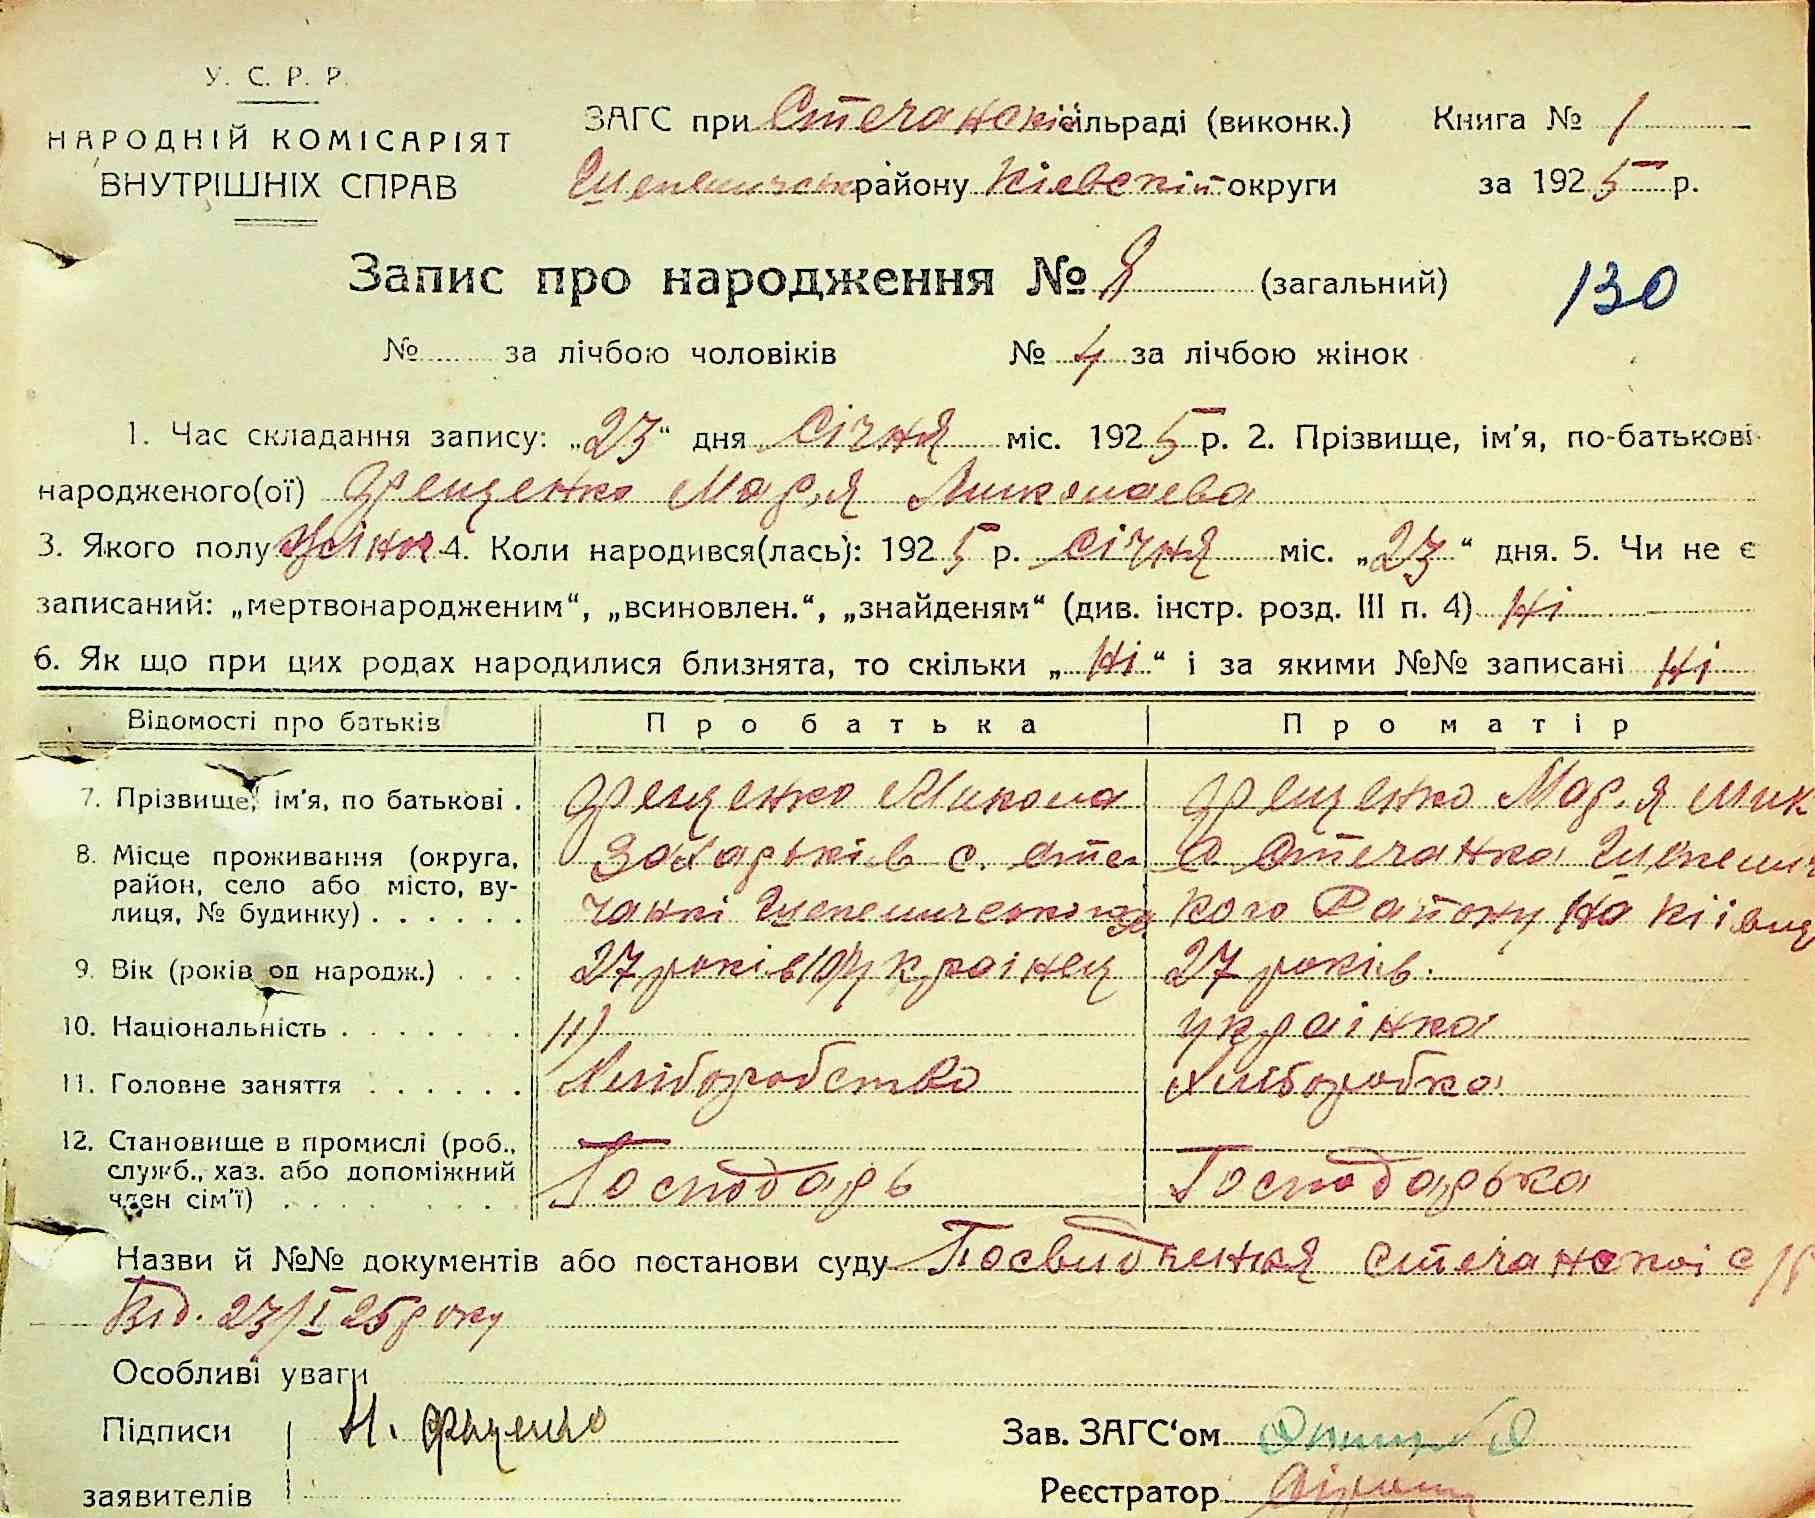 У. С. Р. Р.
НАРОДНІЙ КОМІСАРІЯТ
ВНУТРІШНІХ СПРАВ
ЗАГС при Стечанскі сільраді (виконк.) Книга № 1
району Кіевскій округи за 1925 р.
Запис про народження № (загальний) 130
№ за лічбою чоловіків № 4 за лічбою жінок
1. Час складання запису: „23“ дня Січня міс. 1925 р. 2. Прізвище, ім'я, по-батькові
народженого(ої) Фещенко Мар,я Миколаева
3. Якого полу жіноч 4. Коли народився(лась): 1925 р. Січня міс. „23“ дня. 5. Чи не є
записаний: „мертвонародженим“, „всиновлен.“, „знайденям“ (див. інстр. розд. III п. 4) Ні
6. Як що при цих родах народилися близнята, то скільки „Ні“ і за якими №№ записані Ні
Відомості про батьків Про батька Про матір
7. Прізвище, ім'я, по батькові . Фещенко Микола Фещенко Мар,я Мик
8. Місце проживання (округа, Захарьків с. Сте С Стечанка
район, село або місто, ву-
лиця, № будинку) . . . . . . чанкі кого Району На
9. Вік (років од народж.) . . . 27 років 10) Украінец 27 років.
10. Національність . . . . . . . 11) украінка
11. Головне заняття . . . . . . Хліборобство Хліборобка
12. Становище в промислі (роб.,
служб., хаз. або допоміжний Господарь Господарька
член сім'ї) . . . . . . . . .
Назви й №№ документів або постанови суду Посвидчення Стечанскоі с/р
Від. 23/I 25 року
Особливі уваги
Підписи Н. Фещенко Зав. ЗАГС'ом
заявителів Реєстратор